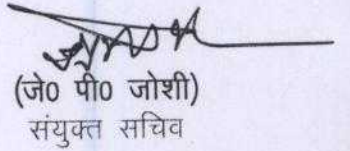 (जे0 पी0 जोशी)
संयुक्त सचिव